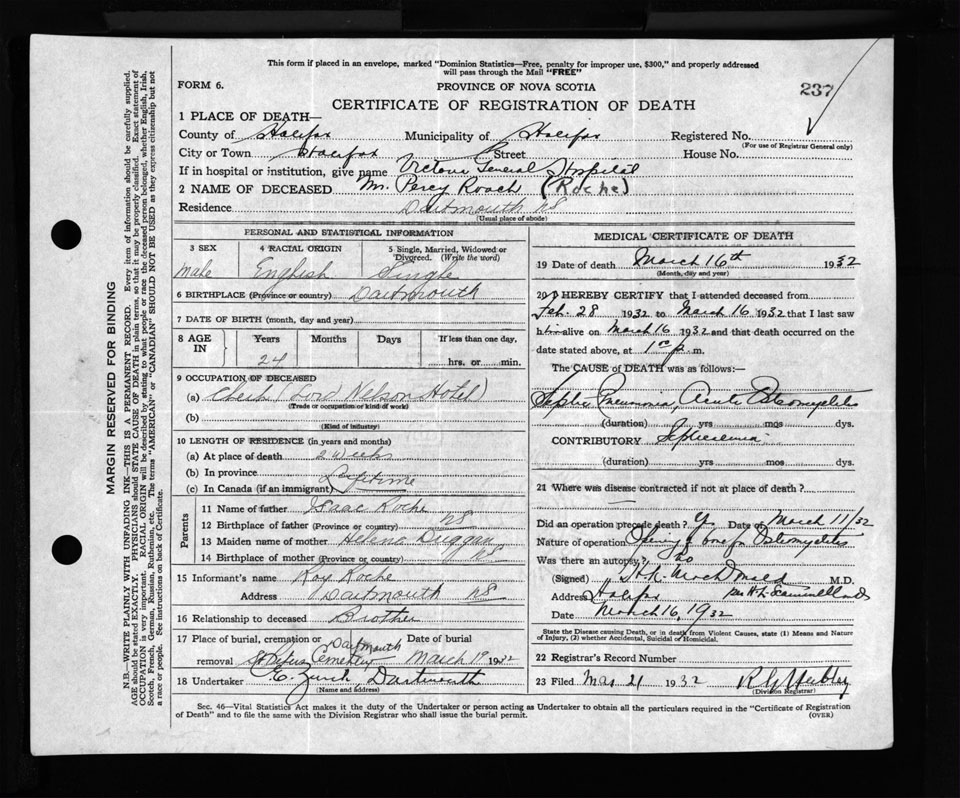 This form if placed in an envelope, marked "Dominion Statistics—Free, penalty for improper use, $300," and properly addressed
will pass through the Mail "FREE"
FORM 6.
PROVINCE OF NOVA SCOTIA
237
CERTIFICATE OF REGISTRATION OF DEATH
1 PLACE OF DEATH—
County of Halifax Municipality of Halifax Registered No.
(For use of Registrar General only)
City or Town Halifax Street House No.
If in hospital or institution, give name Victoria General Hospital
2 NAME OF DECEASED Mr. Percy Roach (Roche)
Residence Dartmouth NS
(Usual place of abode)
PERSONAL AND STATISTICAL INFORMATION
3 SEX 4 RACIAL ORIGIN 5 Single, Married, Widowed or
Divorced. (Write the word)
Male English Single
6 BIRTHPLACE (Province or country) Dartmouth
7 DATE OF BIRTH (month, day and year)
8 AGE IN Years Months Days If less than one day,
24 hrs. or min.
9 OCCUPATION OF DECEASED
(a) (Lord Nelson Hotel)
(Trade or occupation or kind of work)
(b)
(Kind of industry)
10 LENGTH OF RESIDENCE (in years and months)
(a) At place of death 2 weeks
(b) In province Lifetime
(c) In Canada (if an immigrant)
Parents
11 Name of father Isaac Roche
12 Birthplace of father (Province or country) NS
13 Maiden name of mother Helena Duggan
14 Birthplace of mother (Province or country) NS
15 Informant's name Roy Roche
Address Dartmouth NS
16 Relationship to deceased Brother
17 Place of burial, cremation or Dartmouth Date of burial
removal St Peters Cemetery March 19 1932
18 Undertaker E. Zink, Dartmouth
(Name and address)
MEDICAL CERTIFICATE OF DEATH
19 Date of death March 16th 1932
(Month, day and year)
20 I HEREBY CERTIFY that I attended deceased from
Feb. 28 1932 to March 16 1932 that I last saw
him alive on March 16 1932 and that death occurred on the
date stated above, at p m.
The CAUSE of DEATH was as follows:—
Septic Pneumonia, Acute Osteomyelitis
(duration) yrs mos dys.
CONTRIBUTORY Septicaemia
(duration) yrs. mos dys.
21 Where was disease contracted if not at place of death?
Did an operation precede death? Y Date of March 11/32
Nature of operation Opening of bone for Osteomyelitis
Was there an autopsy? no
(Signed) MacDonald M.D.
Address Halifax
Date March 16, 1932
State the Disease causing Death, or in death from Violent Causes, state (1) Means and Nature
of Injury, (2) whether Accidental, Suicidal or Homicidal.
22 Registrar's Record Number
23 Filed Mar 21 1932
(Division Registrar)
Sec. 46—Vital Statistics Act makes it the duty of the Undertaker or person acting as Undertaker to obtain all the particulars required in the "Certificate of Registration
of Death" and to file the same with the Division Registrar who shall issue the burial permit.
(OVER)
MARGIN RESERVED FOR BINDING
N.B.—WRITE PLAINLY WITH UNFADING INK—THIS IS A PERMANENT RECORD. Every item of information should be carefully supplied.
AGE should be stated EXACTLY. PHYSICIANS should STATE CAUSE OF DEATH in plain terms, so that it may be properly classified. Exact statement of
OCCUPATION is very important. RACIAL ORIGIN will be described by stating to what people or race the deceased person belonged, whether English, Irish,
Scotch, French, German, Russian, Ruthenian, etc. The terms "AMERICAN" or "CANADIAN" SHOULD NOT BE USED as they express citizenship but not
a race or people. See instructions on back of Certificate.